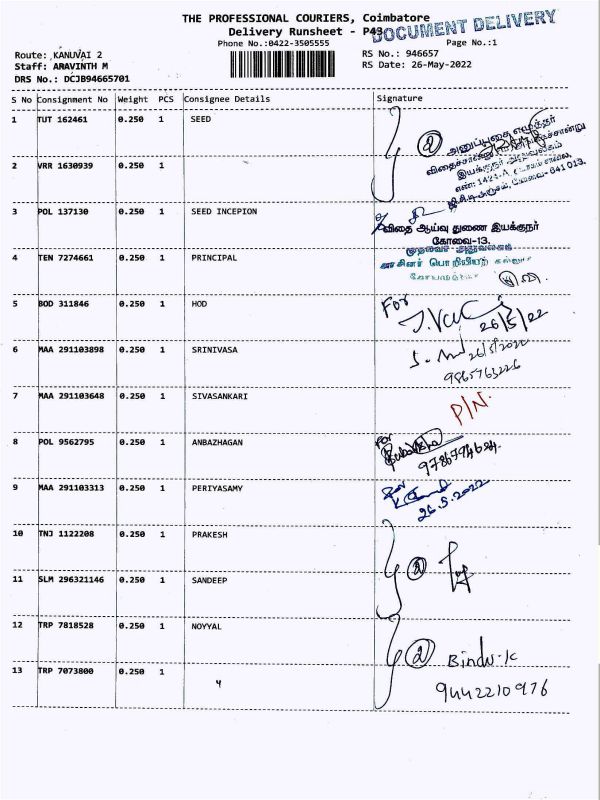 THE PROFESSIONAL COURIERS, Coimbatore
DOCUMENT DELIVERY
Delivery Runsheet - P43
Phone No.:0422-3505555
Page No.:1
Route: KANUVAI 2
RS No.: 946657
Staff: ARAVINTH M
RS Date: 26-May-2022
DRS No.: DCJB94665701
S No Consignment No Weight PCS Consignee Details Signature
1 TUT 162461 0.250 1 SEED
2 அனுப்புகை எழுத்தர்
இயக்குநர் அலுவலகம்
2 VRR 1630939 0.250 1
3 POL 137130 0.250 1 SEED INCEPION
விதை ஆய்வு துணை இயக்குநர்
கோவை-13.
4 TEN 7274661 0.250 1 PRINCIPAL
முதல்வர் அலுவலகம்
5 BOD 311846 0.250 1 HOD For
26/5/22
6 MAA 291103898 0.250 1 SRINIVASA
26/5/2022
9865763226
7 MAA 291103648 0.250 1 SIVASANKARI P/N.
8 POL 9562795 0.250 1 ANBAZHAGAN for
9786794684
9 MAA 291103313 0.250 1 PERIYASAMY for
26.5.2022
10 TNJ 1122208 0.250 1 PRAKESH
2
11 SLM 296321146 0.250 1 SANDEEP
12 TRP 7818528 0.250 1 NOYYAL
2 Bindu.K
13 TRP 7073800 0.250 1
9442210976
4